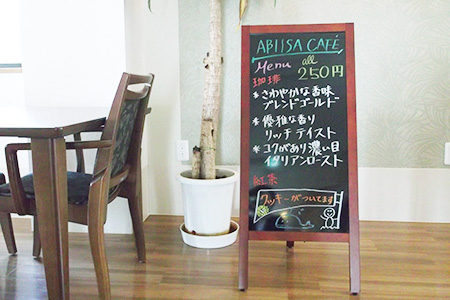 ABIISA CAFÉ
Menu all
珈琲 250円
*さわやかな香味
ブレンドゴールド
*優雅な香り
リッチテイスト
*コクがあり濃い目
イタリアンロースト
紅茶
クッキーがついてます